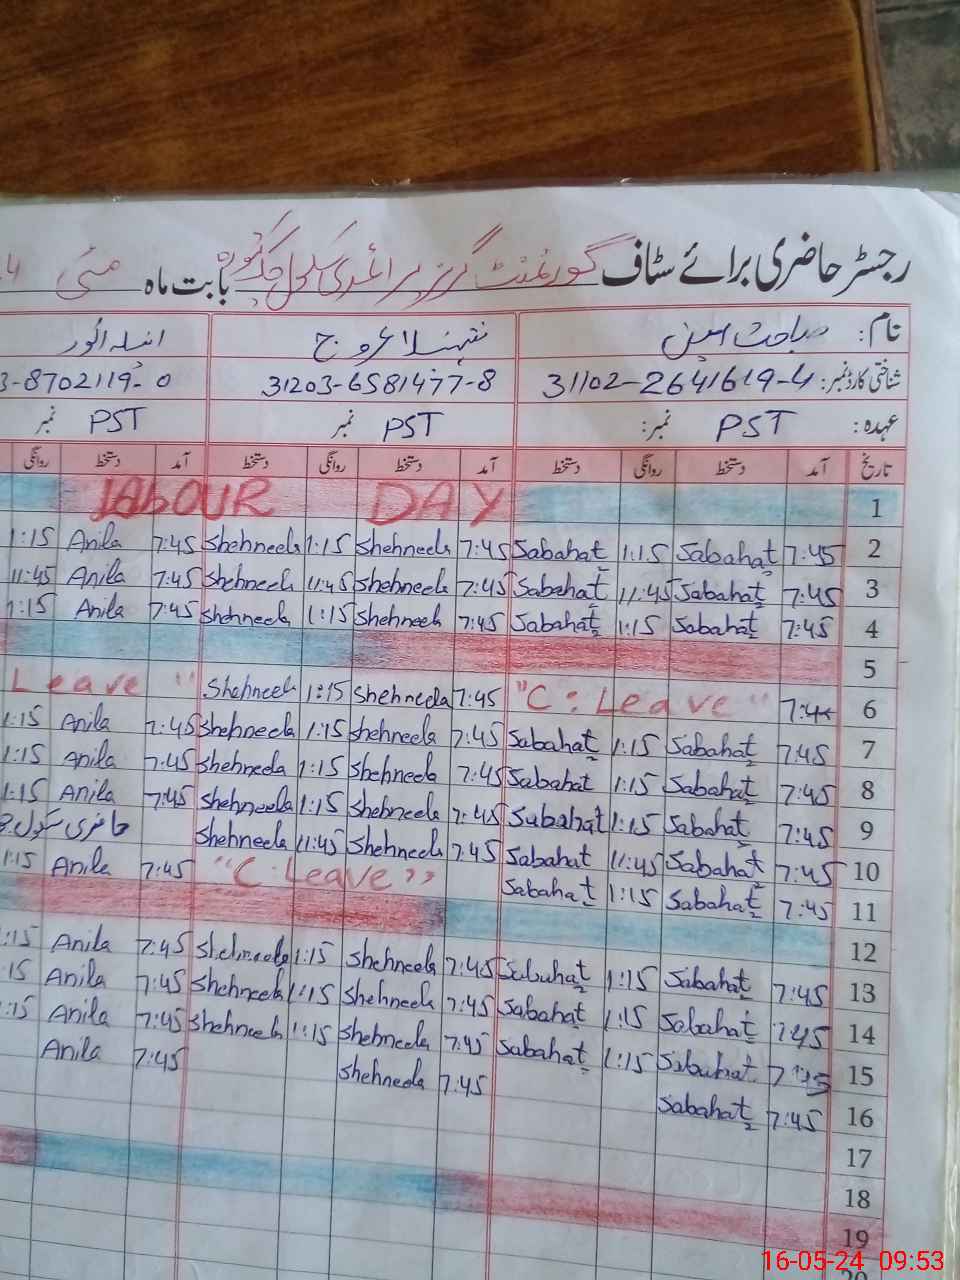 رجسٹر حاضری برائے سٹاف گورنمنٹ گرلز پرائمری سکول بابت ماہ مئی
نام: صباحت
شناختی کارڈ نمبر: 31102-2641619-4 31203-6581477-8 3-8702119-0
عہدہ: PST نمبر: PST نمبر PST نمبر
تاریخ آمد دستخط روانگی دستخط آمد دستخط روانگی دستخط آمد دستخط روانگی
1 LAbOUR DAY
2 7:45 Sabahat 1:15 Sabahat 7:45 Shehneela 1:15 Shehneela 7:45 Anila 1:15
3 7:45 Sabahat 11:45 Sabahat 7:45 Shehneela 11:45 Shehneela 7:45 Anila 11:45
4 7:45 Sabahat 1:15 Sabahat 7:45 Shehneela 1:15 Shehneela 7:45 Anila 1:15
5
6 "C: Leave" 7:45 Shehneela 1:15 Shehneela Leave "
7 7:45 Sabahat 1:15 Sabahat 7:45 Shehneela 1:15 Shehneela 7:45 Anila 1:15
8 7:45 Sabahat 1:15 Sabahat 7:45 Shehneela 1:15 Shehneela 7:45 Anila 1:15
9 7:45 Sabahat 1:15 Sabahat 7:45 Shehneela 1:15 Shehneela 7:45 Anila 1:15
10 7:45 Sabahat 11:45 Sabahat 7:45 Shehneela 11:45 Shehneela حاضری سکول
11 7:45 Sabahat 1:15 Sabahat "C. Leave" 7:45 Anila 1:15
12
13 7:45 Sabahat 1:15 Sabahat 7:45 Shehneela 1:15 Shehneela 7:45 Anila 1:15
14 7:45 Sabahat 1:15 Sabahat 7:45 Shehneela 1:15 Shehneela 7:45 Anila :15
15 7:45 Sabahat 1:15 Sabahat 7:45 Shehneela 1:15 Shehneela 7:45 Anila :15
16 7:45 Sabahat 7:45 Shehneela 7:45 Anila
17
18
19
20
16-05-24 09:53